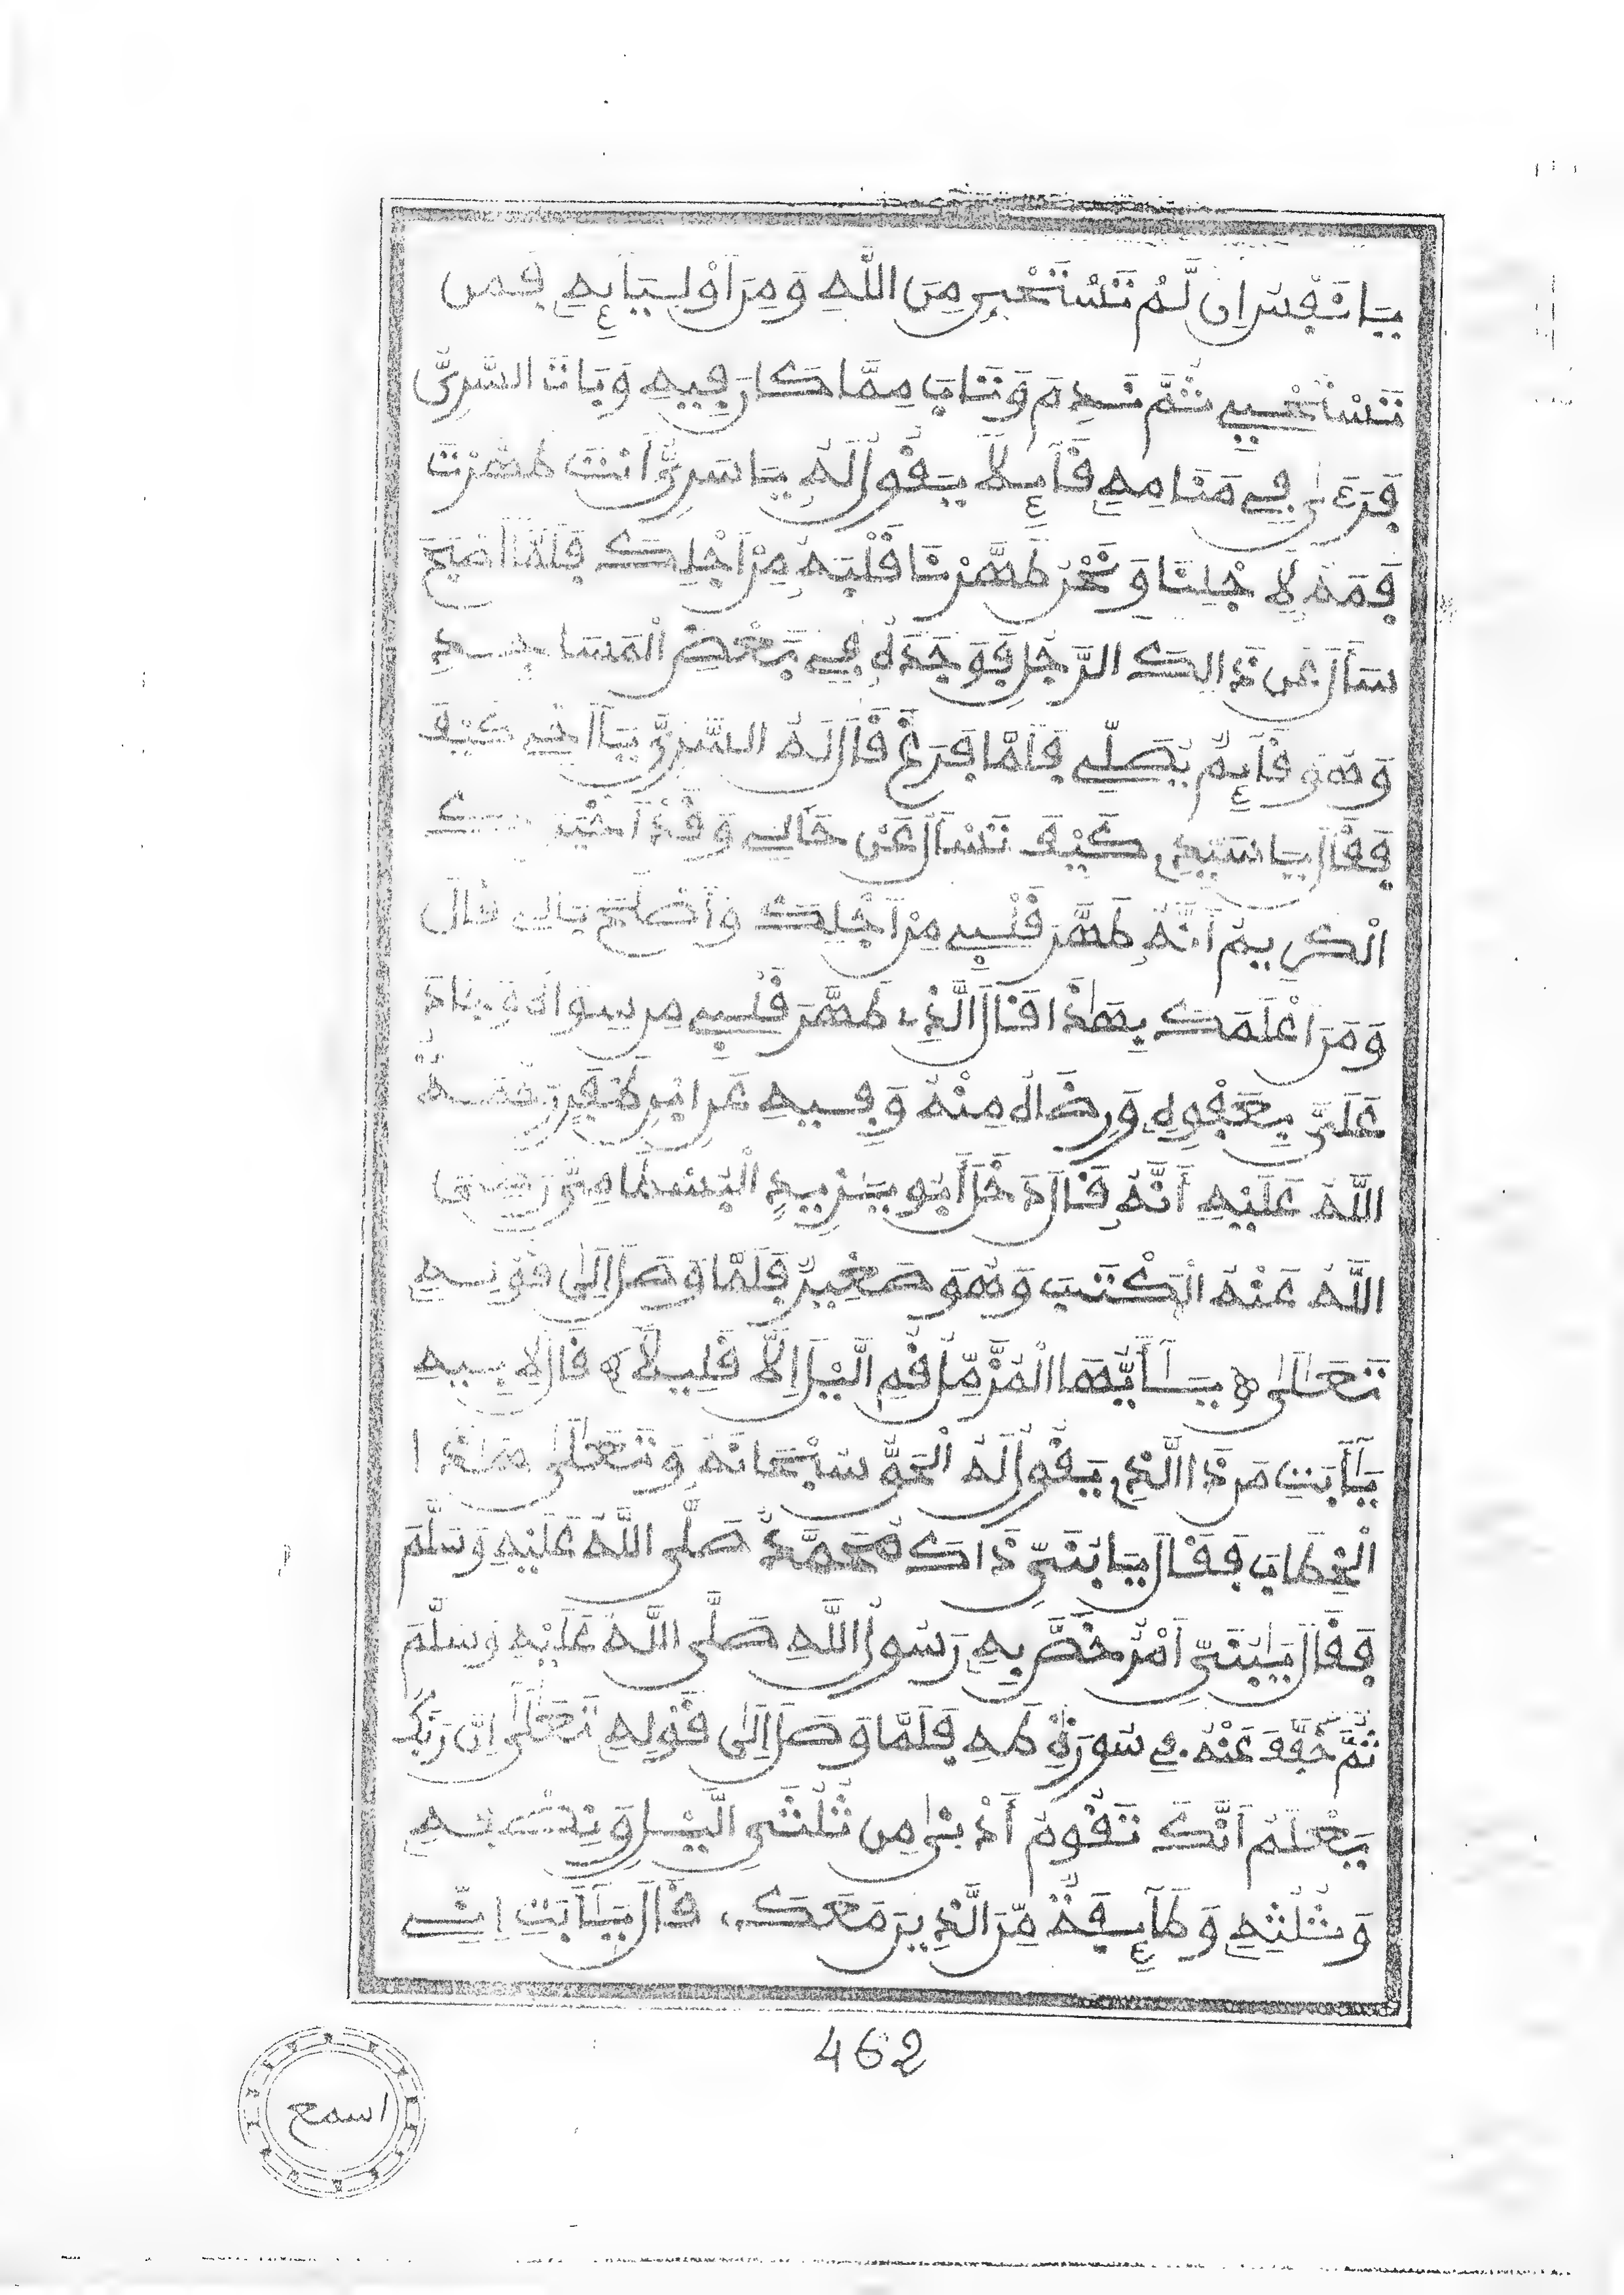 يَا نَفْسُ إِن لَّمْ تَسْتَحْيِي مِنَ اللَّهِ وَمِنَ اَوْلِيَآئِهِ فَمِمَّن
تَسْتَحْيِي ثُمَّ نَدِمَ وَتَابَ مِمَّا كَانَ فِيهِ وَبَاتَ السَّرِيُّ
فَرَءَىٰ فِي مَنَامِهِ قَآئِلاً يَقُولُ لَهُ يَا سَرِيُّ أَنْتَ طَهَّرْتَ
فَمَهُ لِأَجْلِنَا وَنَحْنُ طَهَّرْنَا قَلْبَهُ مِنْ اَجْلِكَ فَلَمَّا أَصْبَحَ
سَأَلَ عَن ذَالِكَ الرَّجُلِ فَوَجَدَهُ فِي بَعْضِ الْمَسَاجِدِ
وَهُوَ قَآئِمٌ يُصَلِّي فَلَمَّا فَرَغَ قَالَ لَهُ السَّرِيُّ يَآ أَخِي كَيْفَ
فَقَالَ يَا سَيِّدِي كَيْفَ تَسْأَلُ عَنْ حَالِي وَقَدْ أَخْبَرَكَ
الْكَرِيمُ أَنَّهُ طَهَّرَ قَلْبِي مِنْ اَجْلِكَ وَأَصْلَحَ بَالِي قَالَ
وَمَنَ اَعْلَمَكَ بِهَٰذَا قَالَ الَّذِي طَهَّرَ قَلْبِي مِن سِوَاهُ وَجَادَ
عَلَيَّ بِعَفْوِهِ وَرِضَاهُ مِنْهُ وَفِيهِ عَنِ ابْنِ ظَفَرٍ رَحْمَةُ
اللَّهِ عَلَيْهِ أَنَّهُ قَالَ دَخَلَ أَبُو يَزِيدِ الْبَسْطَامِيُّ رَضِيَ
اللَّهُ عَنْهُ الْكُتَّبَ وَهُوَ صَغِيرٌ فَلَمَّا وَصَلَ إِلَىٰ قَوْلِهِ
تَعَالَىٰ يَٰٓأَيُّهَا الْمُزَّمِّلُ قُمِ الَّيْلَ إِلاَّ قَلِيلاً قَالَ لِأَبِيهِ
يَٰٓأَبَتِ مَن ذَا الَّذِي يَقُولُ لَهُ الْحَقُّ سُبْحَانَهُ وَتَعَالَىٰ هَٰذَا
الْخِطَابَ فَقَالَ يَا بُنَيِّ ذَاكَ مُحَمَّدٌ صَلَّى اللَّهُ عَلَيْهِ وَسَلَّمَ
فَقَالَ يَٰبُنَيِّ اَمْرٌ خُصَّ بِهِ رَسُولُ اللَّهِ صَلَّى اللَّهُ عَلَيْهِ وَسَلَّمَ
ثُمَّ خَفَّفَ عَنْهُ فِي سُورَةِ طَهِ فَلَمَّا وَصَلَ إِلَىٰ قَوْلِهِ تَعَالَىٰ إِنَّ رَبَّكَ
يَعْلَمُ أَنَّكَ تَقُومُ أَدْنَىٰ مِن ثُلُثَيِ الَّيْلِ وَنِصْفِهِ
وَثُلُثِهِ وَطَآئِفَةٌ مِّنَ الَّذِينَ مَعَكَ، قَالَ يَٰٓأَبَتِ إِنِّي
462
اسمع